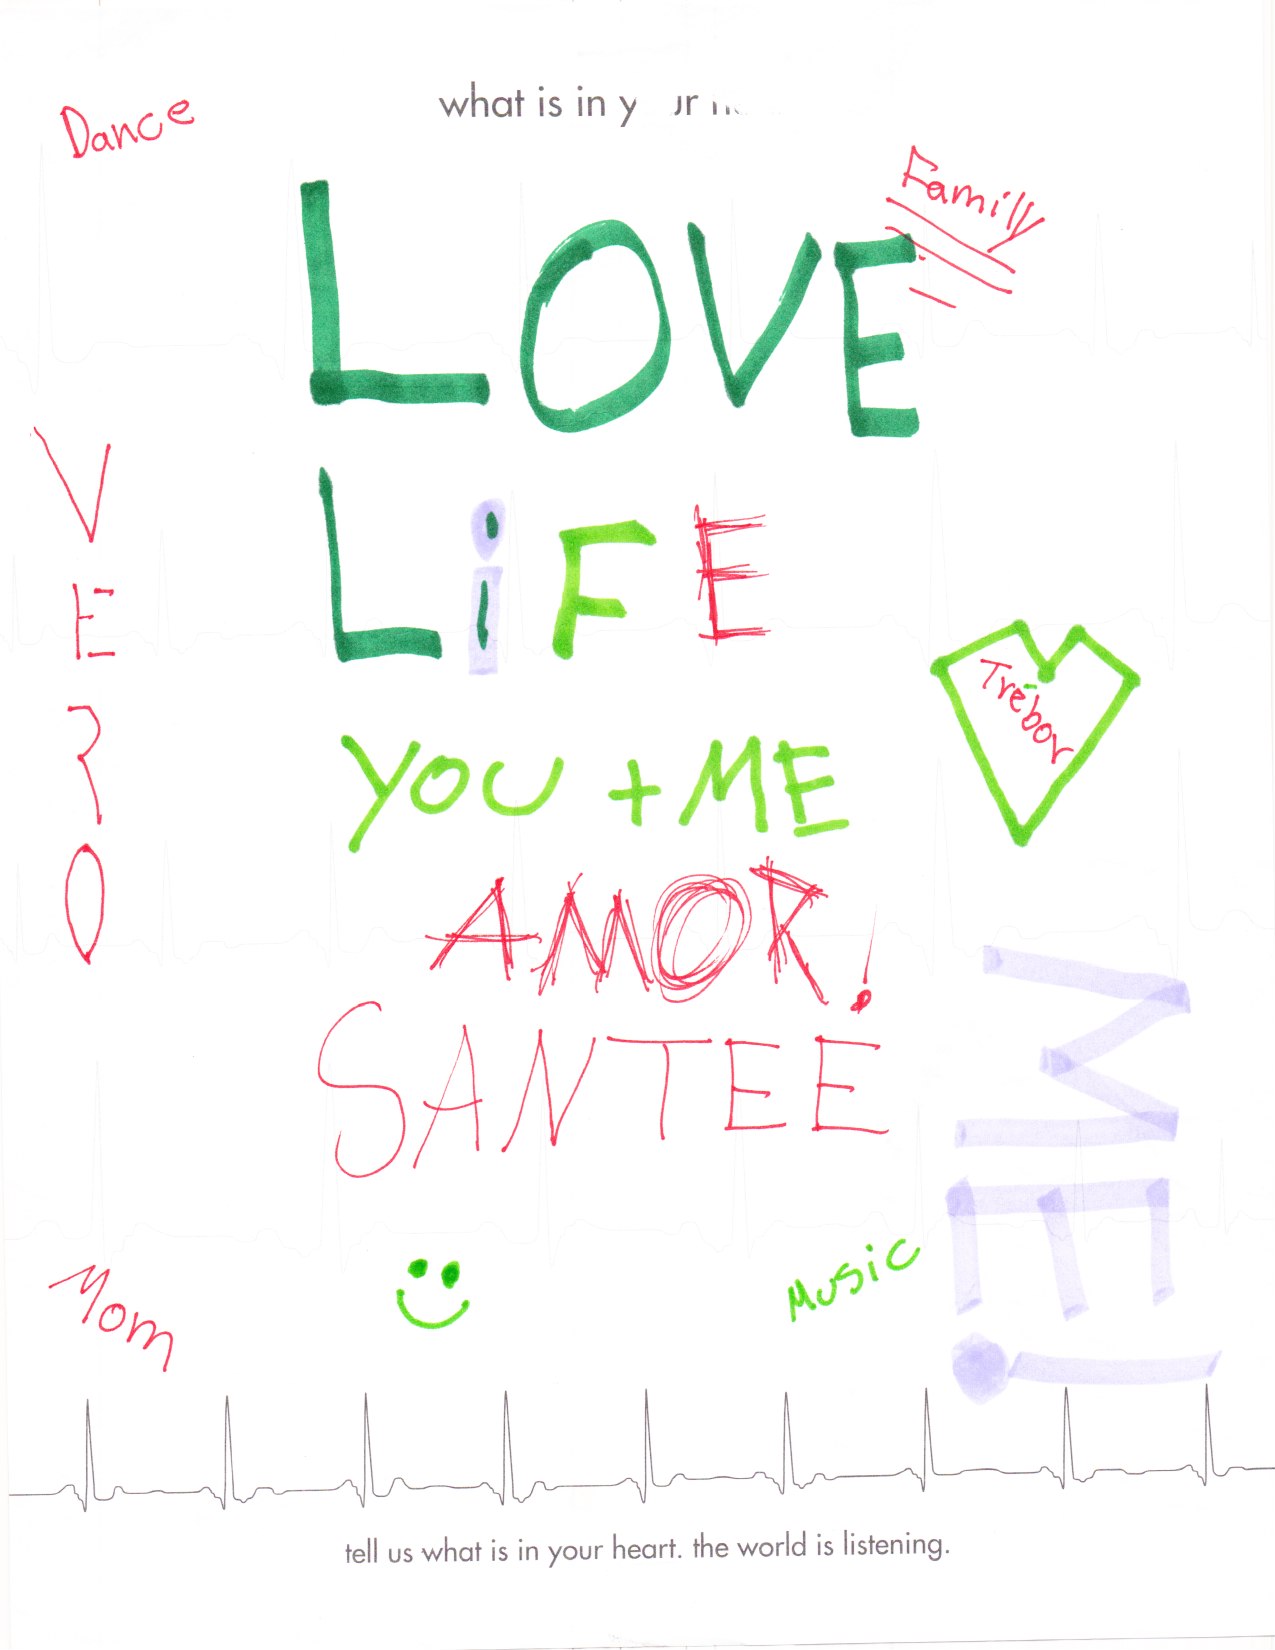 what is in y ur
Dance
Familly
LOVE
LiFE
VERO
Trébor
YOU + ME
AMOR!
SANTEE
ME!
Mom
Music
tell us what is in your heart. the world is listening.